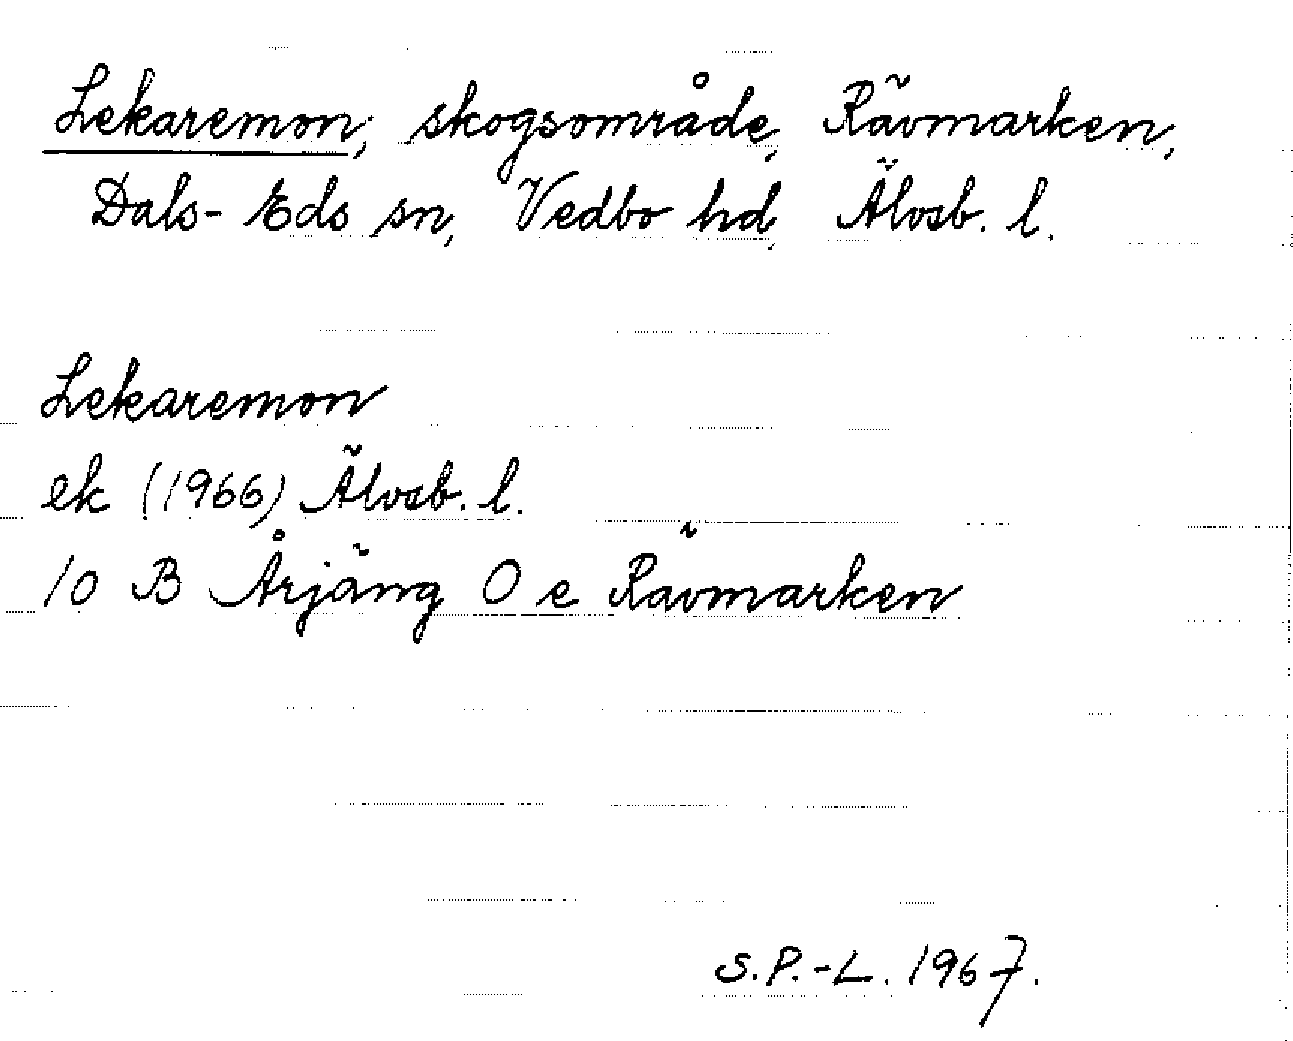 Lekaremon, skogsområde, Rävmarken,
Dals-Eds sn, Vedbo hd, Älvsb. l.
Lekaremon
ek (1966) Älvsb. l.
10 B Årjäng O e Rävmarken
S.P.-L. 1967.